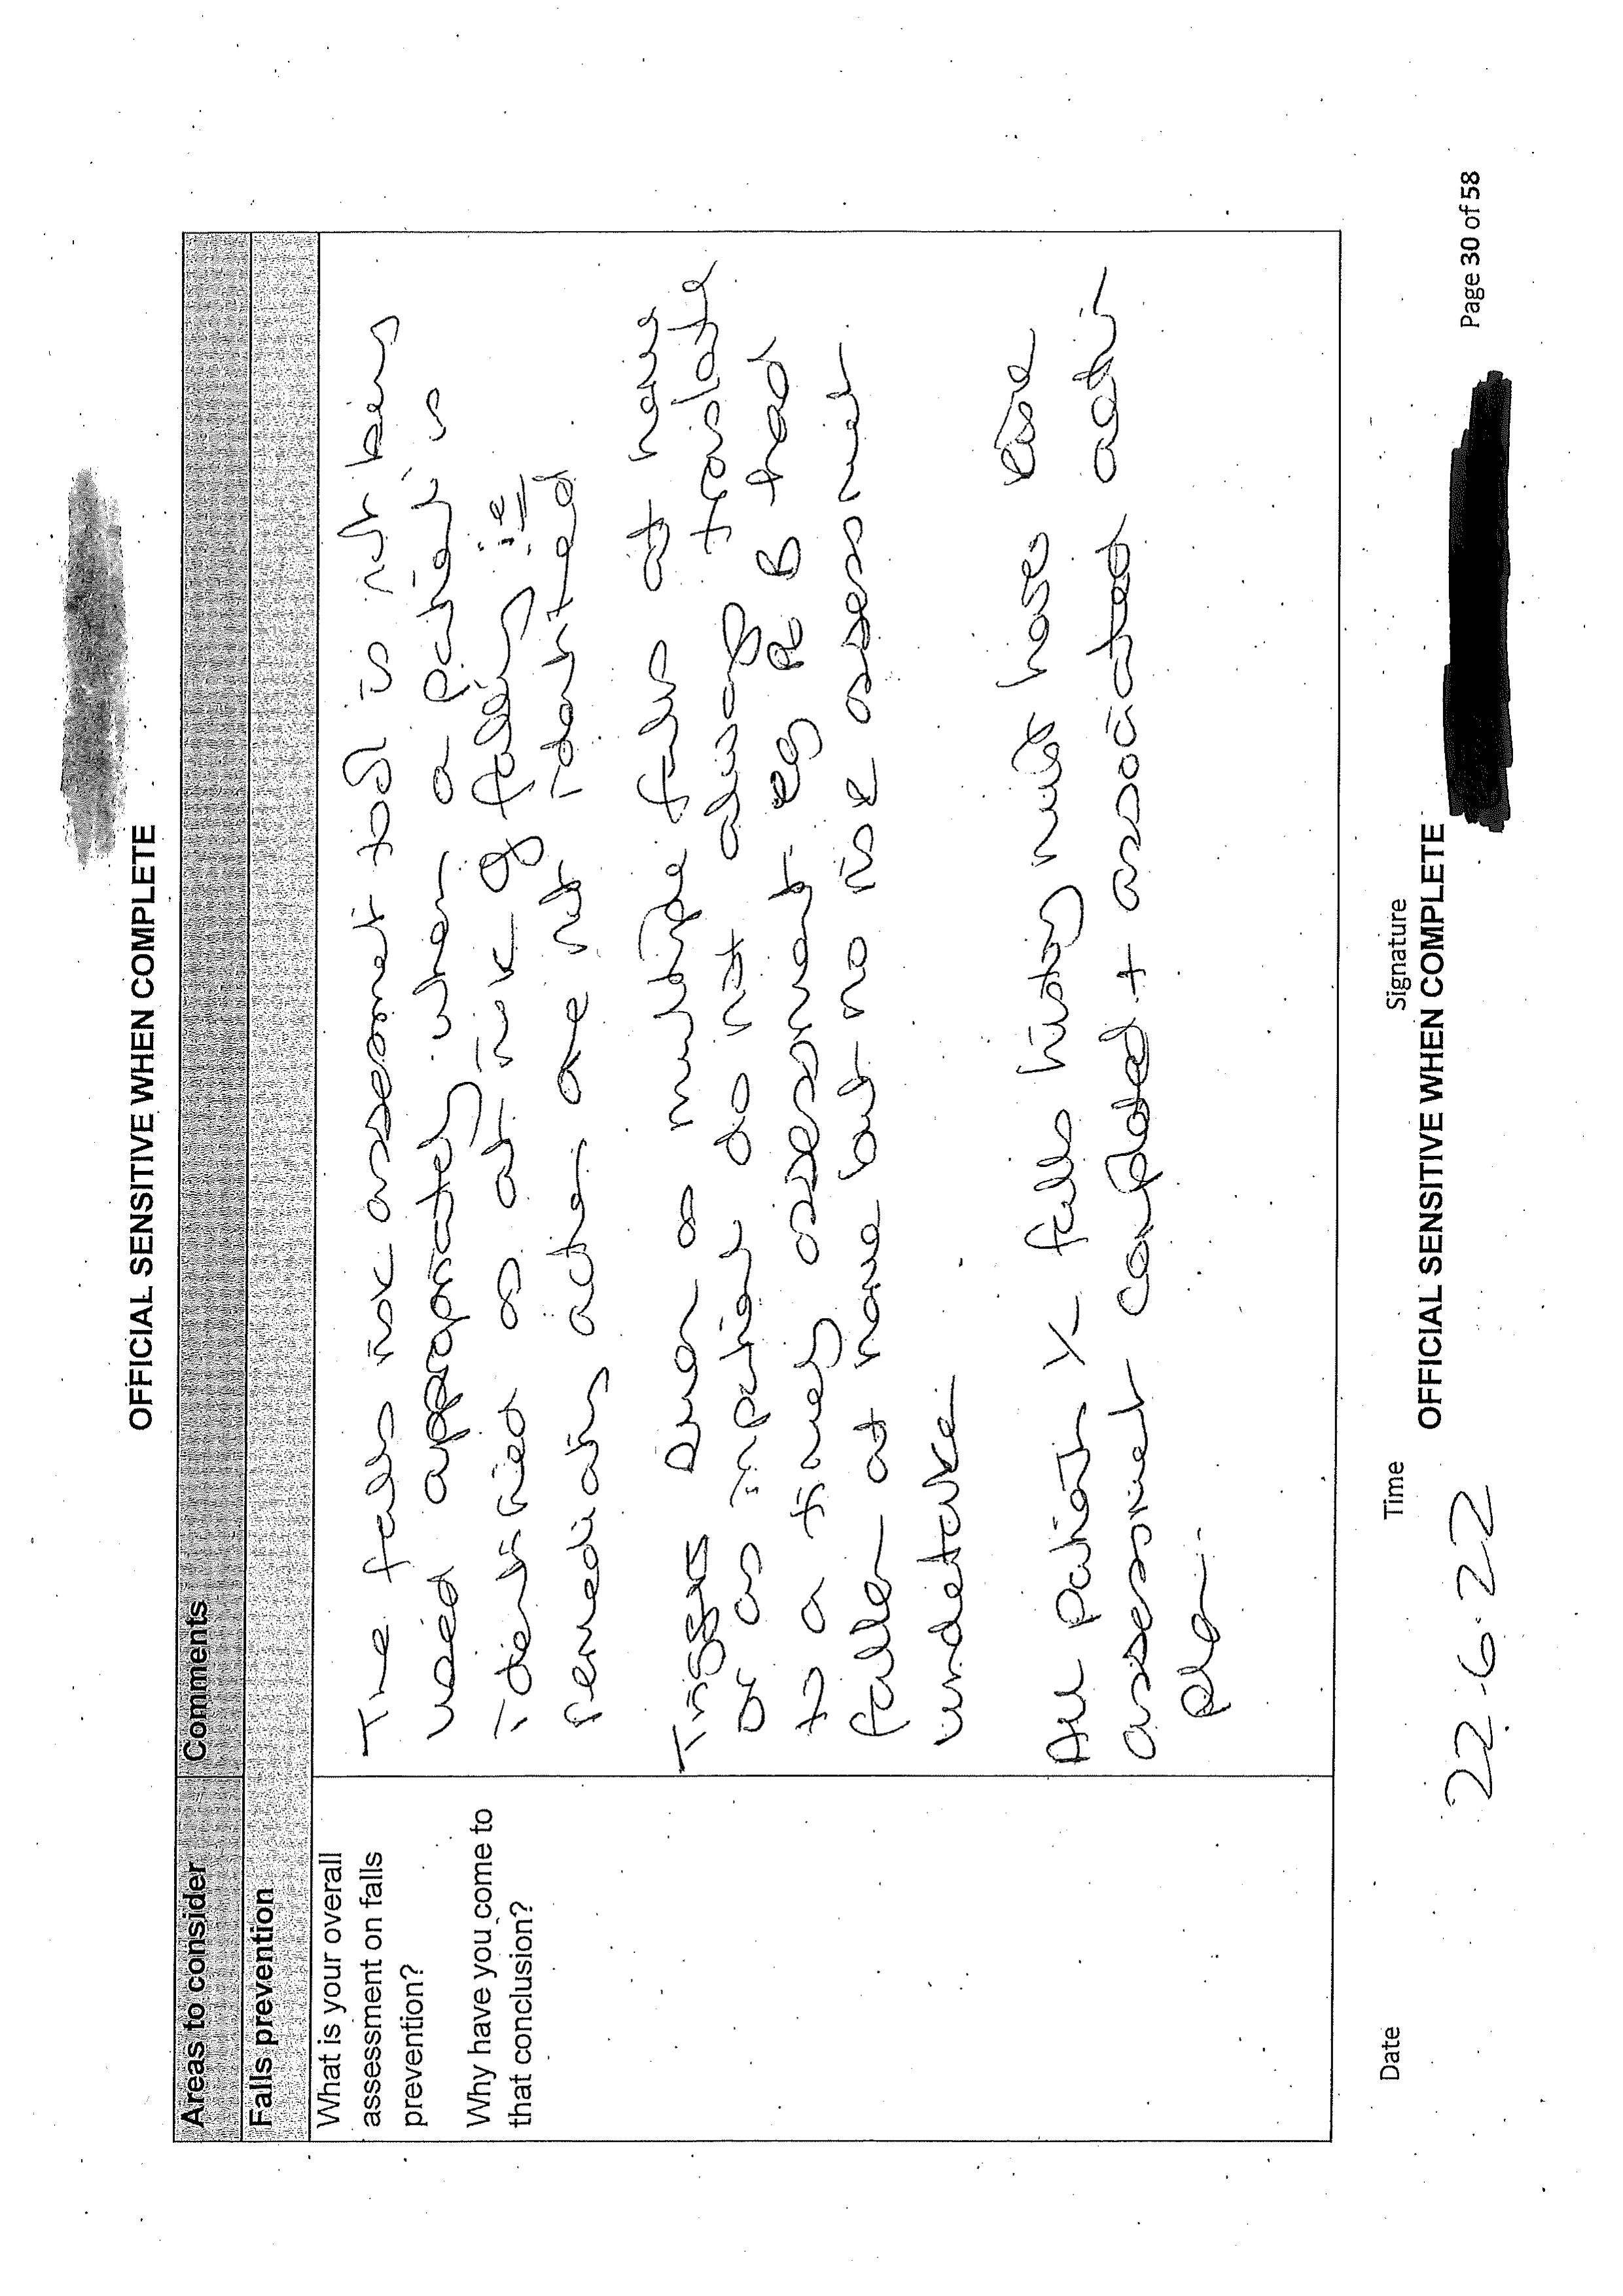 OFFICIAL SENSITIVE WHEN COMPLETE
Areas to consider Comments
Falls prevention
What is your overall
assessment on falls
prevention?
Why have you come to
that conclusion?
The falls risk assessment tool is not being
used appropriately when a patient is
identified as at risk of falling ie
remediating action are not identified
Triggers such as multiple falus at home
or as inpatient do not always translate
to a timely assessment eg Pt B had
fallen at home but no risk assessment
undertaken
All patient  falls history must have  risk
assessment completed + associated action
plan.
Date Time Signature
22.6.22
OFFICIAL SENSITIVE WHEN COMPLETE
Page 30 of 58